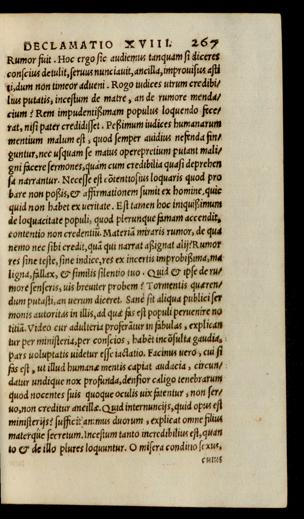 DECLAMATIO XVIII. 267
Rumor fuit. Hoc ergo sic audiemus tanquam si diceres
conscius detulit, seruus nunciauit, ancilla, improuisus asti
ti, dum non timeor adueni. Rogo iudices utrum credibi/
lius putatis, incestum de matre, an de rumore menda/
cium? Rem impudentißimam populus loquendo fece/
rat, nisi pater credidisset. Peßimum iudices humanarum
mentium malum est, quod semper auidius nefanda fin/
guntur, nec usquam se maius operepretium putant mali/
gni facere sermones, quàm cum credibilia quasi deprehen
sa narrantur. Necesse est cōtentiosius loquaris quod pro
bare non poßis, & affirmationem sumit ex homine, quic
quid non habet ex ueritate. Est tamen hoc iniquißimum
de loquacitate populi, quod plerunque famam accendit,
contentio non credentiū. Materiā miraris rumor, de qua
nemo nec sibi credit, quā qui narrat aßignat alij? Rumor
res sine teste, sine indice, res ex incertis improbißima, ma
ligna, fallax, & similis silentio tuo. Quid & ipse de ru/
more senseris, uis breuiter probem? Tormentis quæren/
dum putasti, an uerum diceret. Sanè sit aliqua publici ser
monis autoritas in illis, ad quæ fas est populi peruenire no
titiā. Video cur adulteria proferātur in fabulas, explican
tur per ministeria, per conscios, habet incōsulta gaudia,
pars uoluptatis uidetur esse iactatio. Facinus uero, cui si
fas est, ut illud humanæ mentis capiat audacia, circun/
datur undique nox profunda, densior caligo tenebrarum
quod nocentes suis quoque oculis uix fatentur, non ser/
uo, non creditur ancillæ. Quid internuncijs, quid opus est
ministerijs? sufficit animus duorum, explicat omne filius
materque secretum. Incestum tanto incredibilius est, quan
to & de illo plures loquuntur. O misera conditio sexus,
cuius